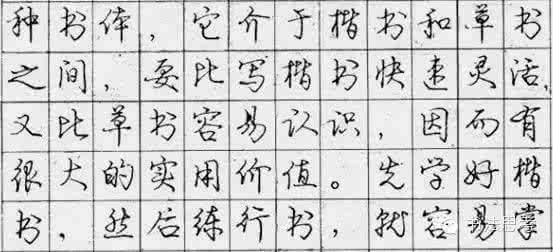 种书体，它介于楷书和草书
之间，要比写楷书快速灵活，
又比草书容易认识，因而有
很大的实用价值。先学好楷
书，然后练行书，就容易掌